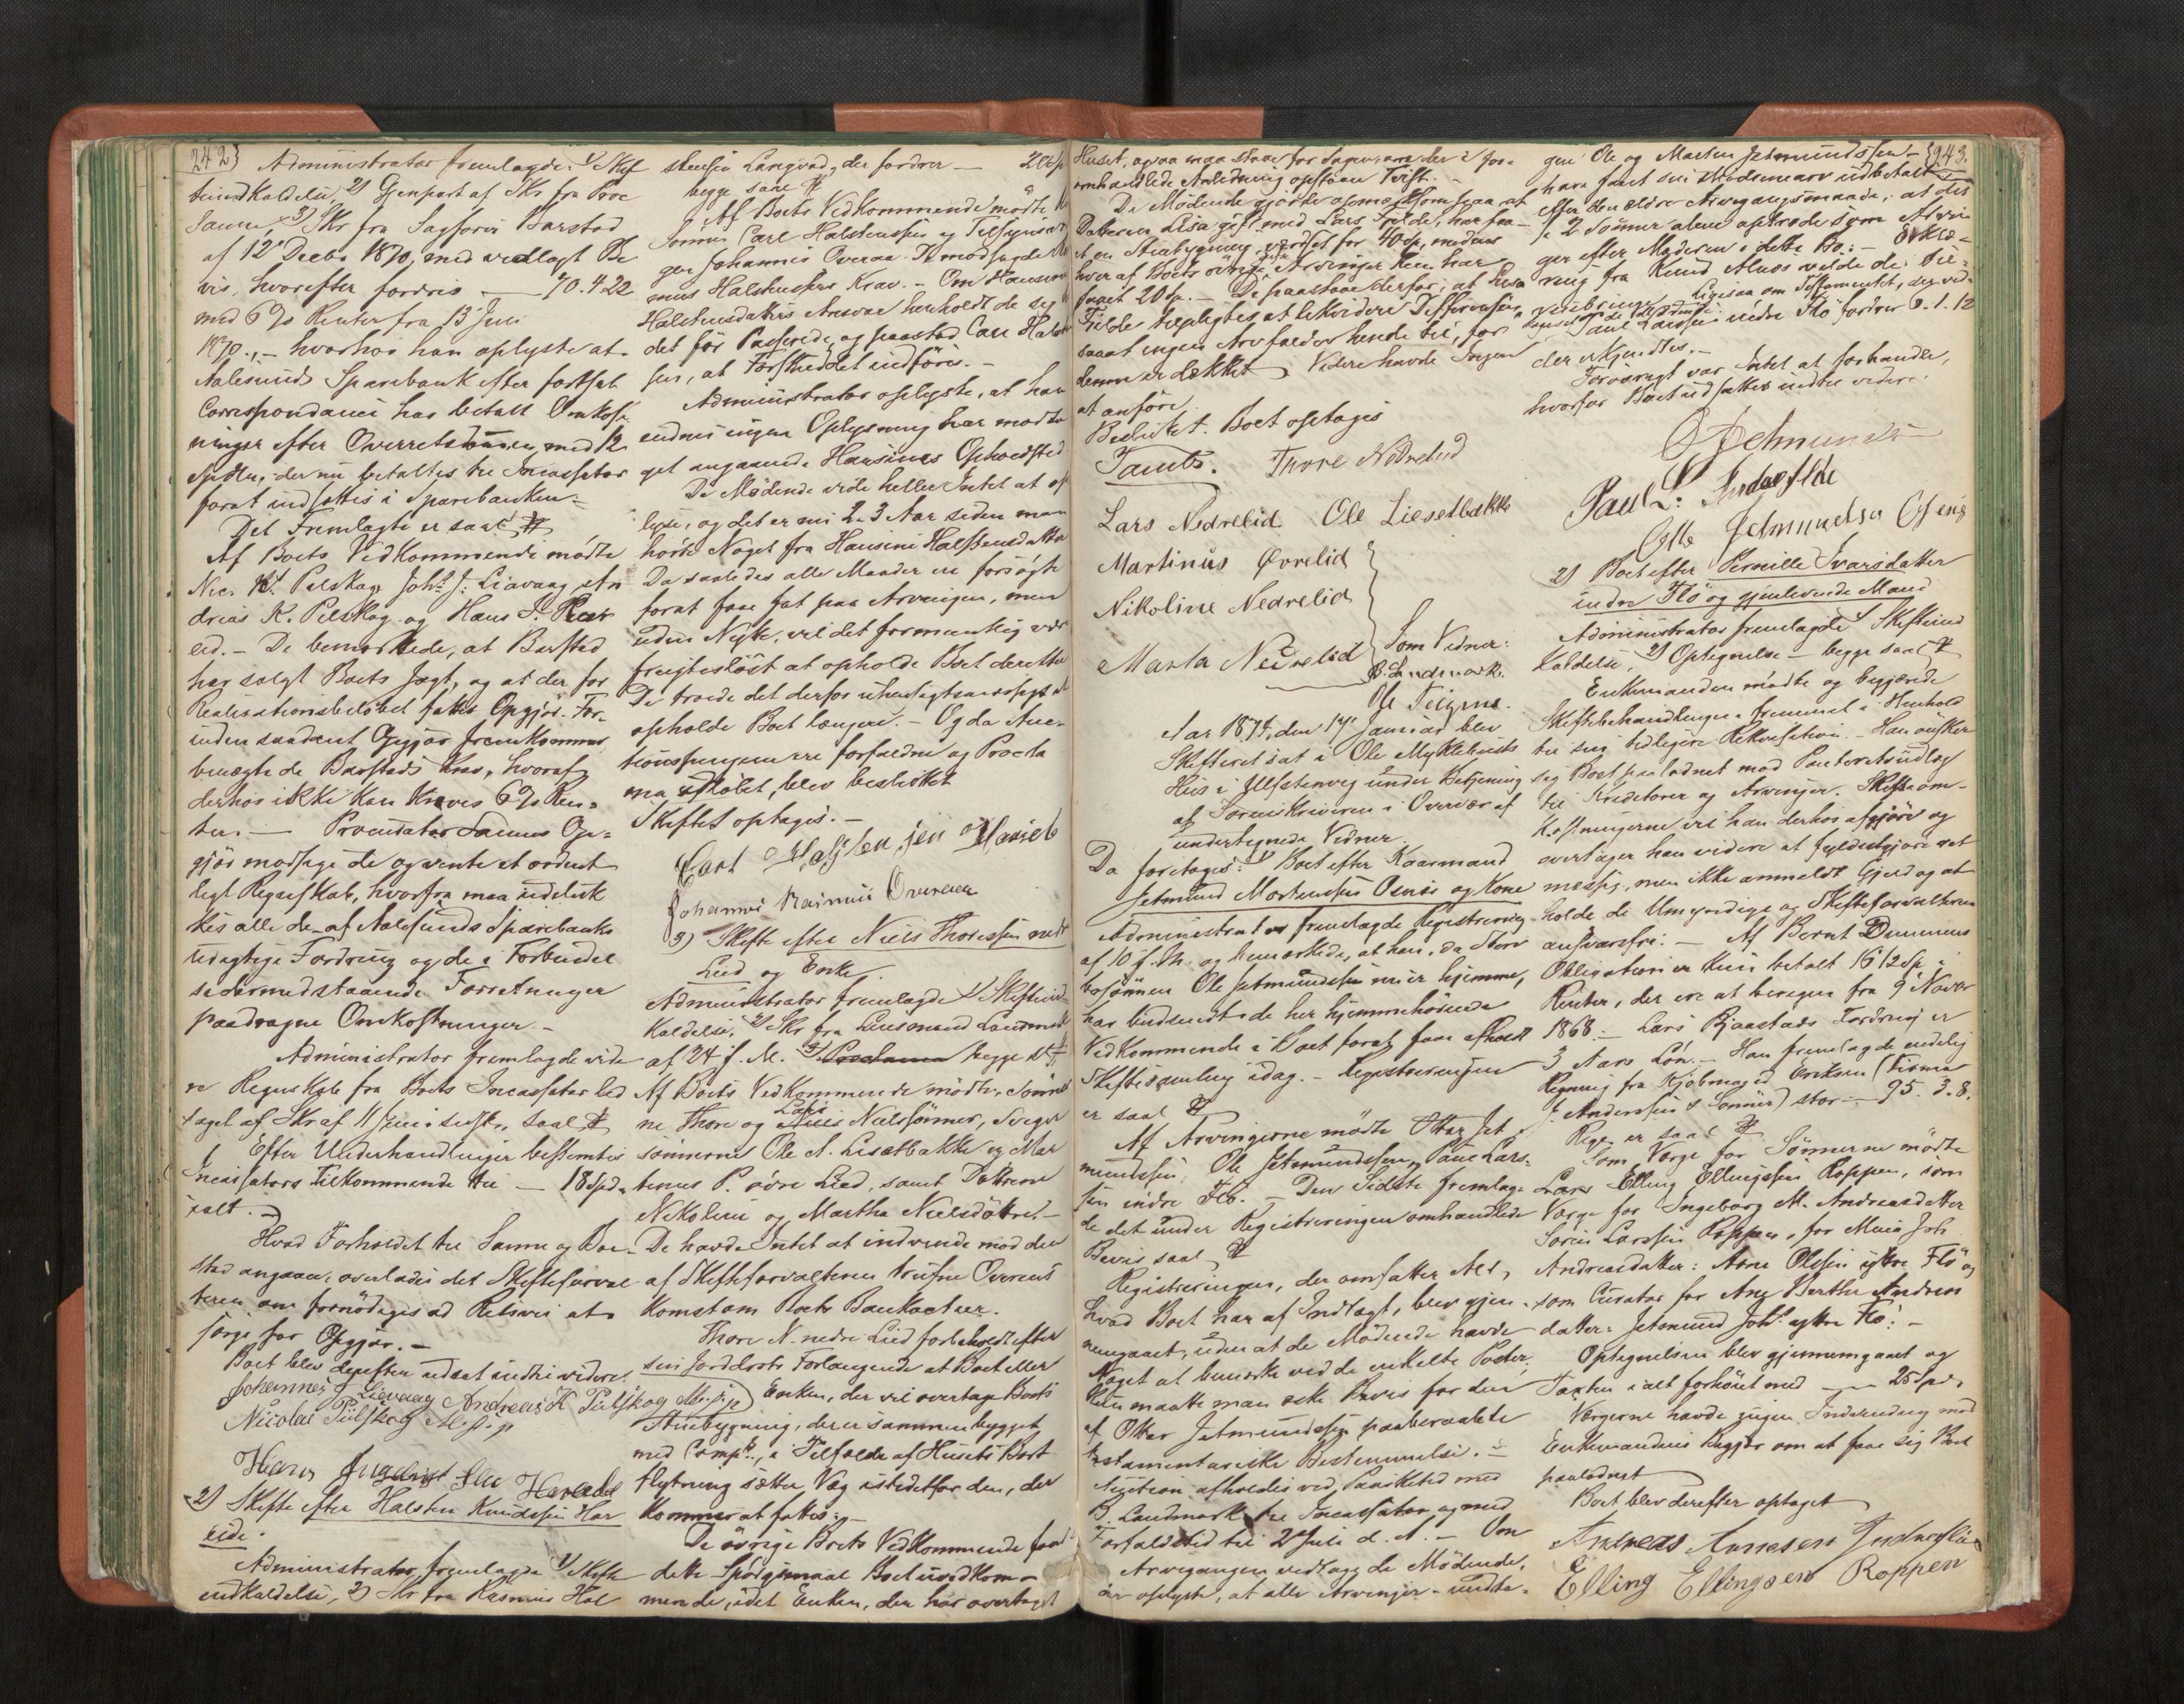 242
Administrator fremlagde 1) Skif
teindkaldelse, 2) Gjenpart af Skr fra Proc
Sannes, 3) Skr fra Sagfører Barstad
af 12' Decbr 1870, med vedlagt Be
vis, hvorefter fordres — 70. 4. 22
med 6% Renter fra 13' Juli
1870., - hvorhos han oplyste at
Aalesunds Sparebank efter fortsat
Correspondance har betalt Omkost
ninger efter Overretsdommen med 12
Spdlr, der nu betaltes til Incassator
forat indsættes i Sparebanken.
Det Fremlagte er saal.
Af Boets Vedkommende mødte
Nic. K. Pilskog, Johs J. Liavaag, An
dreas K. Pilskog og Hans I. Har
eid. - De bemærkede, at Barstad
har solgt Boets Jægt, og at der for
Realisationsbeløbet fattes Opgjør. For-
inden saadant Opgjør fremkommer
benægtede Barstads Krav, hvoraf
derhos ikke kan kræves 6% Ren-
ter. — Procurator Sannes Op-
gjør modsagde og vente et ordent
ligt Regnskab, hvorfra maa udeluk
kes alle de af Aalesunds Sparebanks
uægtige Fordring og de i Forbindel
se dermed staaende Forretninger
paadragne Omkostninger. -
Administrator fremlagde vide
re Regnskab fra Boets Incassator led
saget af Skr af 11 Juni sidstl., saal.
Efter Underhandlinger bestemtes
Incassators Tilkommende til — 18 Spd.
ialt.
Hvad Forholdet til Sannes og Bar-
stad angaaer, overlades det Skifteforval
teren om fornødiges ad Retsvei at
sørge for Opgjør. -
Boet blev derefter udsat indtil videre.
Johannes J Liavaag Andreas K Pilskog M. f. p.
Nicolai Pilskog M. f. p.
Hans Ingebrigt sen Hareide
2) Skifte efter Halsten Knudssen Har
eide.
Administrator fremlagde 1) Skifte
indkaldelse, 2) Skr fra Rasmus Hal
stensen Langvad, der fordrer — 20 Sp
begge saal.
Af Boets Vedkommende mødte
Sønnen Carl Halstensen og Tilsynsvær
ge Johannes Overaa. De modsagde Ras
mus Halstensens Krav. - Om Hansine
Halstensdatters Ansvar henholdt de sig til
det før Passerede, og paastod Carl Halsten
sen, at Forstheddet indføres. -
Administrator oplyste, at han
endnu ingen Oplysning har modta
get angaaende Hansines Opholdssted
De Mødende vide heller Intet at op
lyse, og det er nu 2-3 Aar siden man
hørte Noget fra Hansine Halstensdatter
Da saaledes alle Maader ere forsøgte
forat faae fat paa Arvingen, men
uden Nytte, vil det formentlig være
frugtesløst at opholde Boet derefter
De troede det derfor uhensigtsmæssigt at
opholde Boet længere. - Og da Auc-
tionspengene ere forfaldne og Procla
ma udløbet, blev besluttet
Skiftet optages. -
Carl Halstensen Hareide
Johannes Rasmus Overaa
3) Skifte efter Niels Thoressen nedre
Lied og Enke.
Administrator fremlagde 1) Skifteind
kaldelse, 2) Skr fra Lensmand Landmark
af 24 f. M. 3) Proclama begge st
Af Boets Vedkommende mødte: Sønner
ne Thore og Lars Nielssønner, Sviger
sønnerne Ole A. Lisætbakke og Mar
tinus P. øvre Lied, samt Døttrene
Nikoline og Martha Nielsdøttre. -
De havde Intet at indvende mod den
af Skifteforvalteren trufne Overens
komst om Boets Bankactier.
Thore N. nedre Lied forbeholdt efter
sin Jorddrots Forlangende at Boet eller
Enken, der vil overtage Boets
Stuebygning, der er sammenbygget
med Comp., i Tilfælde af Husets Bort
flytning sætter Væg istedetfor den, der
kommer at fattes. -
De øvrige Boets Vedkommende fandt
dette Spørgsmaal Boet uvedkom-
mende, idet Enken, der har overtaget
243.
Huset, ogsaa maa staae for Sagen, om der i for-
omhandlede Anledning opstaaer Tvist. -
De Mødende gjorde opmærksom paa, at
Datteren Lisa gift med Lars Fjelde, har faa-
et en Stuebygning værdsat for 40 Sp, medens
hver af Boets øvrige Arvinger kun har
faaet 20 Sp. - De paastaae derfor, at Lisa
Fjelde tilpligtes at likvidere Differensen
saaat ingen Arv falder hende til, før
denne er dækket. Videre havde Ingen
at anføre
Besluttet. Boet optages
Tambs. Thore Nedrelid
Lars Nedrelid Ole Liesetbakke
Martinus Øvrelid
Nikoline Nedrelid
Marta Nedrelid
Som Vidner:
B. Landmark.
Ole Teigene.
Aar 1871, den 14' Januar blev
Skifteret sat i Ole Myklebusts
Huus i Ulfstenvog under Betjening
af Sorenskriveren i Overvær af
undertegnede Vidner.
Da foretoges: 1) Boet efter Kaarmand
Jetmund Mortenssen Osnæs og Kone
Administrator fremlagde Registrering
af 10 f. M. og bemærkede, at han, da Stor
bosønnen Ole Jetmundssen nu er hjemme,
har budsendt de her hjemmehørende
Vedkommende i Boet forat faae afholdt
Skiftesamling idag. - Registreringen
er saal.
Af Arvingerne mødte Ottar Jet
mundssen, Ole Jetmundssen, Paul Lars-
sen indre Flø. - Den Sidste fremlag-
de det under Registreringen omhandlede
Bevis saal.
Registreringen, der omfatter Alt,
hvad Boet har af Indtægt, blev gjen-
nemgaaet, uden at de Mødende havde
Noget at bemærke ved de enkelte Poster.
Kun maatte man æske Bevis for den
af Ottar Jetmundssen paaberaabte
testamentariske Bestemmelse. -
Auction afholdes ved Lavikeled med
B. Landmark til Incassator og med
Forfaldstid til 2 Juli d. A. - Om
Arvegangen vedtog de Mødende,
der oplyste, at alle Arvinger - undta-
gen Ole og Morten Jetmundssen -
have faaet sin Mødrenearv udbetalt
efter den ældre Arvegangsmaade, at dis
se 2 Sønner alene optræde som Arvin
ger efter Moderen i dette Bo: - Erklæ-
ring fra Knud Alnæs vilde de til-
veiebringe. Ligesaa om Testamentet, der ved-
Paul Larssen indre Flø fordrer 6. 1. 12
der erkjendtes. -
Forøvrigt var Intet at forhandle,
hvorfor Boet udsattes indtil videre.
O Jetmundsen
Paul L. Indreflde
Otte Jetmundsen Osnes
2) Boet efter Pernille Ivarsdatter
indre Flø og gjenlevende Mand
Administrator fremlagde 1) Skifteind
kaldelse, 2) Optegnelse - begge saal.
Enkemanden mødte og begjærede
Skiftebehandlingen fremmet i Henhold
til sin tidligere Rekvisition. - Han ønsker
sig Boet paalodnet mod Panteretsudlæg
til Kreditorer og Arvinger. Skifteom-
kostningerne vil han derhos afgjøre og
overtager han videre at fyldestgjøre ret
mæssig, men ikke anmeldt Gjæld og at
holde de Umyndige og Skifteforvalteren
ansvarsfri. — Af Bernt Dimmens
Obligation er kun betalt 16 1/2 Sp i
Renter, der ere at beregne fra 9 Novbr
1868. - Lars Bjaastads Fordring er
3 Aars Løn. - Han fremlagde endelig
Regning fra Kjøbmand Eriksen (Firma
J. Anderssen & Sønner) stor — 95. 3. 8.
Regn. er saal.
Som Værge for Sønnerne mødte
Lars Elling Ellingssen Roppen, som
Værge for Ingeborg M. Andreasdatter
Søren Larssen Roppen, for Maria Joh
Andreasdatter: Arne Olssen ytre Flø og
som Curator for Ane Berthe Andreas
datter: Jetmund Johs. ytre Flø. -
Optegnelsen blev gjennemgaaet og
Taxten ialt forhøiet med — 25 Spd.
Værgerne havde ingen Indvending mod
Enkemandens Begjær om at faae sig Boet
paalodnet
Boet blev derefter optaget
Andreas Arnesen Indreflø
Elling Ellingsen Roppen